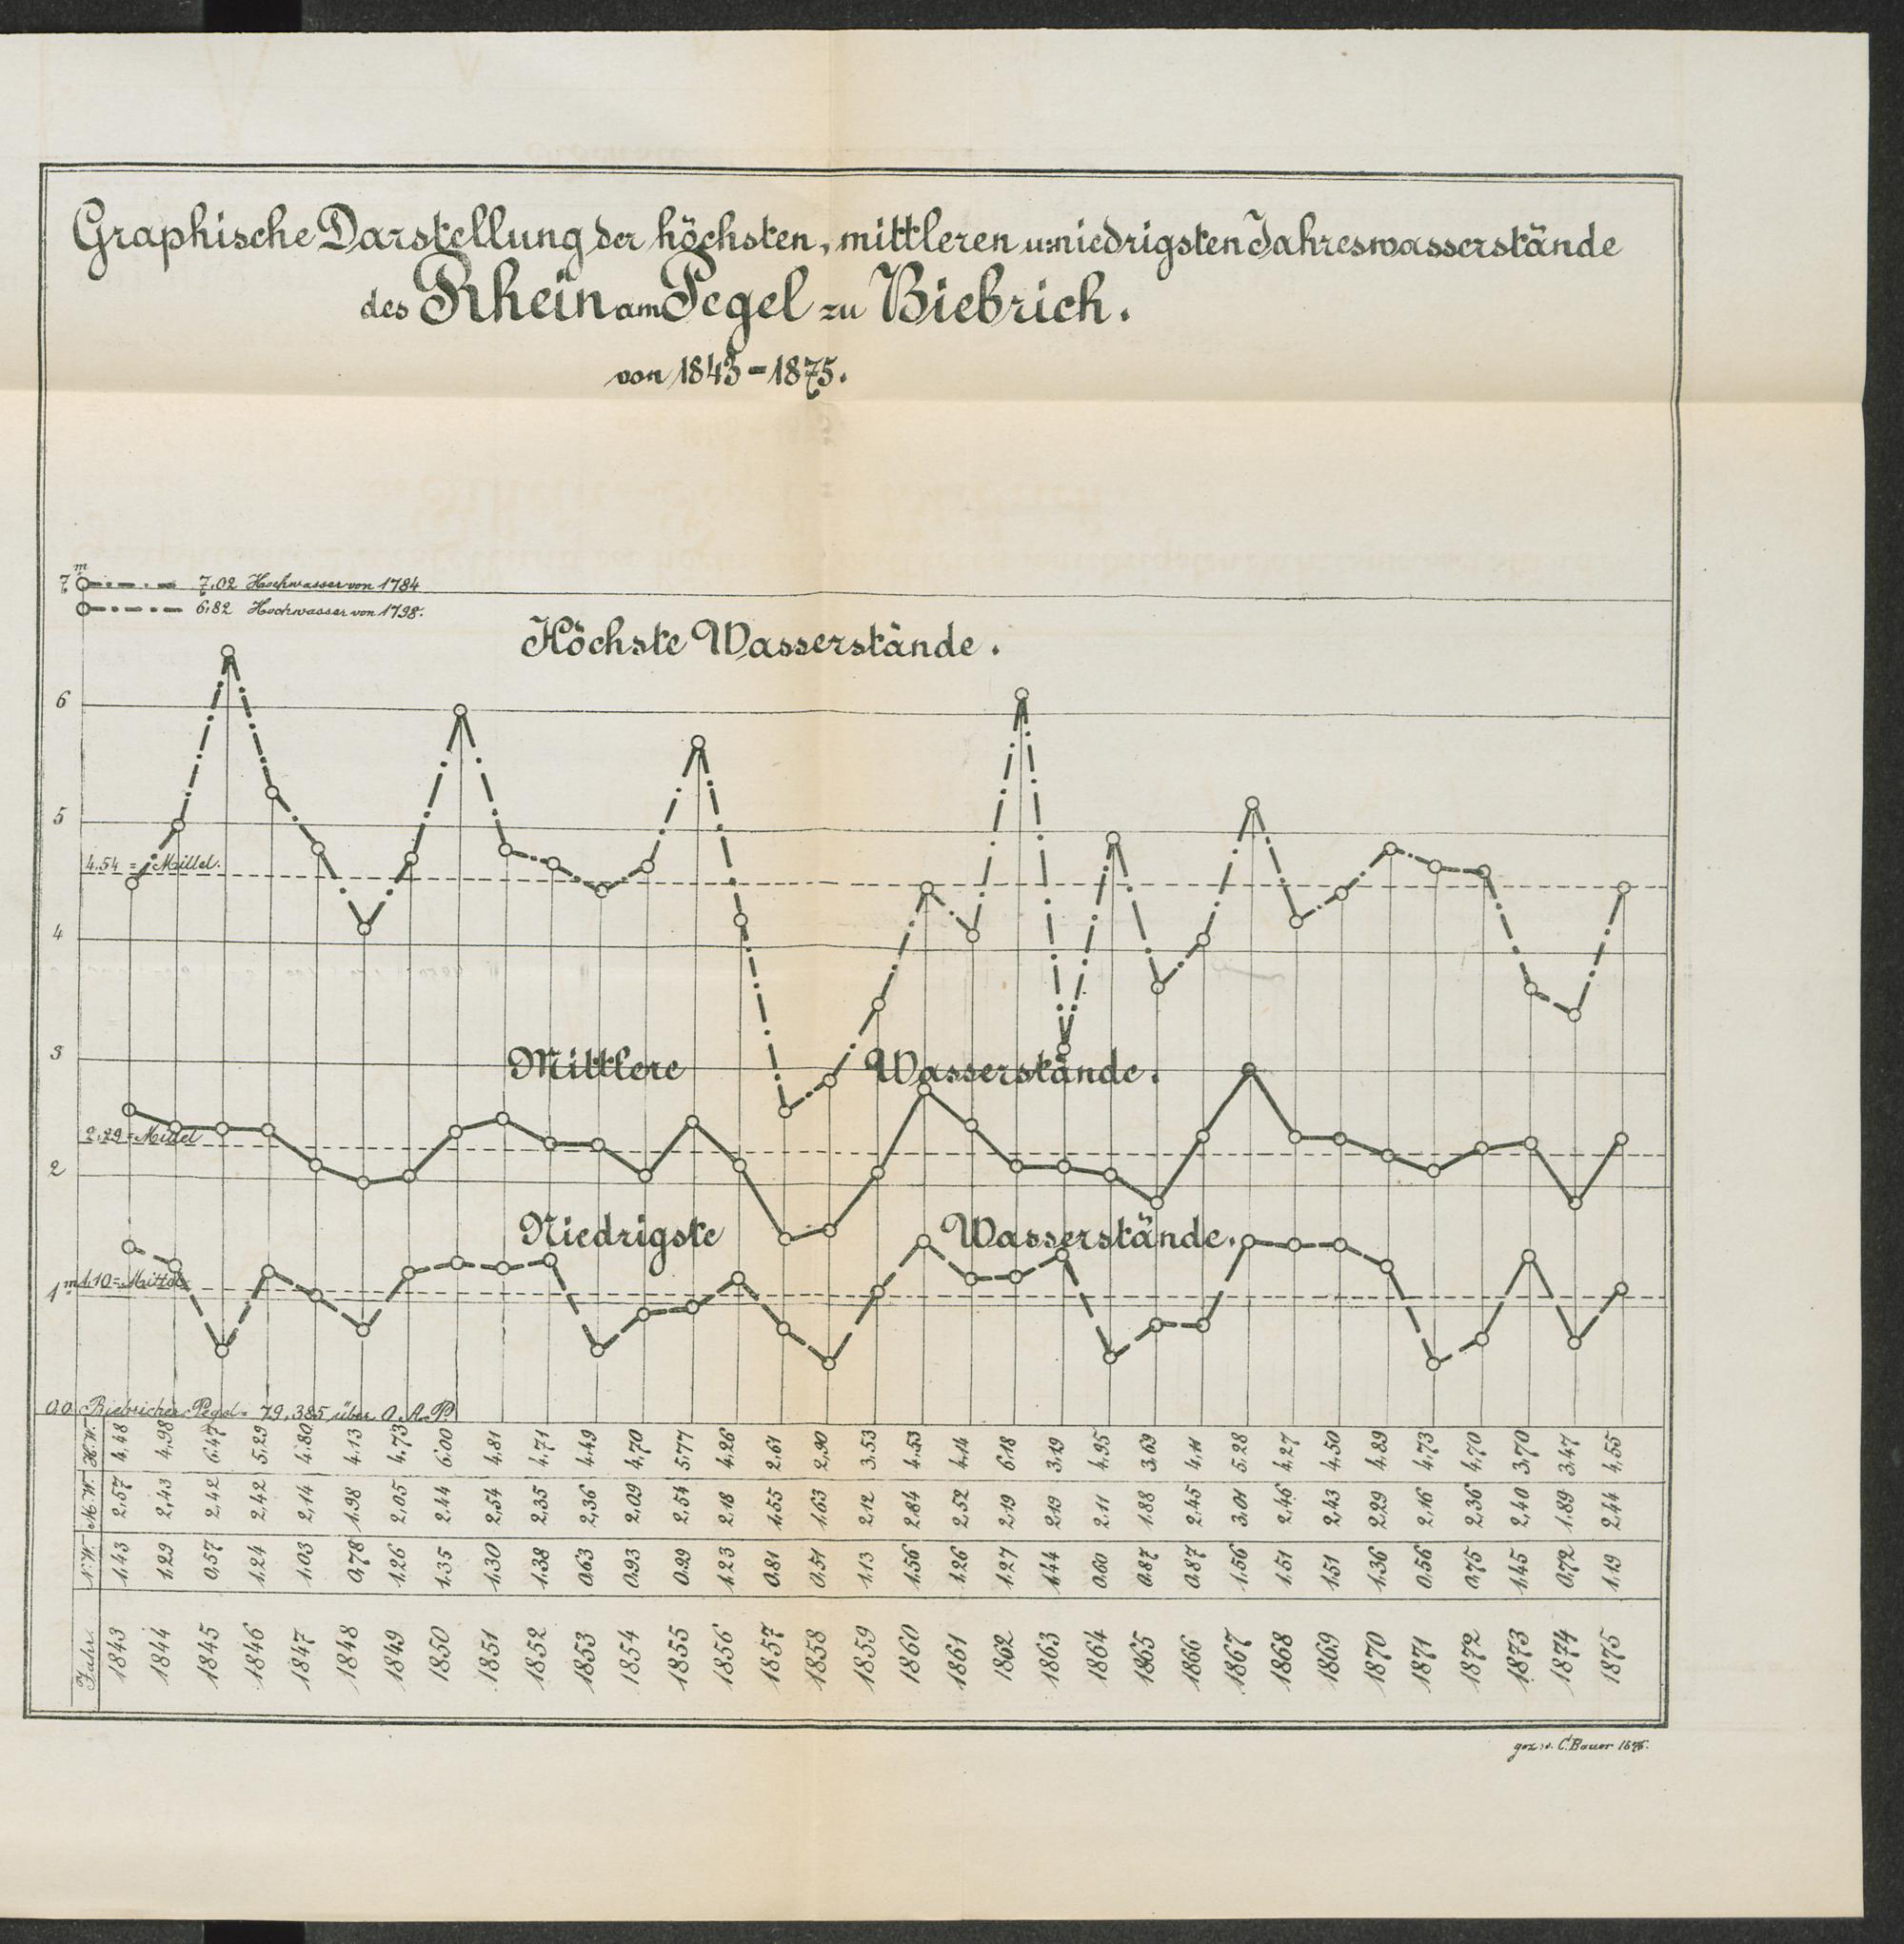 Graphische Darstellung der höchsten, mittleren u: niedrigsten Jahreswasserstände
des Rhein am Pegel zu Biebrich.
von 1843-1875.
7m 7,02 Hochwasser von 1784
6,82 Hochwasser von 1798.
Höchste Wasserstände.
6
5
4,54 = Mittel.
4
3
Mittlere Wasserstände.
2,29 = Mittel
2
Niedrigste Wasserstände.
1m 1,10 = Mittel
0,0 Biebricher Pegel = 79,385 über O A.P.
H.W. 4,48 4,98 6,47 5,29 4,80 4,13 4,73 6,00 4,81 4,71 4,49 4,70 5,77 4,26 2,61 2,90 3,53 4,53 4,14 6,18 3,19 4,95 3,69 4,11 5,28 4,27 4,50 4,89 4,73 4,70 3,70 3,47 4,55
M.W. 2,57 2,43 2,42 2,42 2,14 1,98 2,05 2,44 2,54 2,35 2,36 2,09 2,54 2,18 1,55 1,63 2,12 2,84 2,52 2,19 2,19 2,11 1,88 2,45 3,01 2,46 2,43 2,29 2,16 2,36 2,40 1,89 2,44
N.W. 1,43 1,29 0,57 1,24 1,03 0,78 1,26 1,35 1,30 1,38 0,63 0,93 0,99 1,23 0,81 0,51 1,13 1,56 1,26 1,27 1,44 0,60 0,87 0,87 1,56 1,51 1,51 1,36 0,56 0,75 1,45 0,72 1,19
Jahr. 1843 1844 1845 1846 1847 1848 1849 1850 1851 1852 1853 1854 1855 1856 1857 1858 1859 1860 1861 1862 1863 1864 1865 1866 1867 1868 1869 1870 1871 1872 1873 1874 1875
gez: v. C. Bauer 1876.